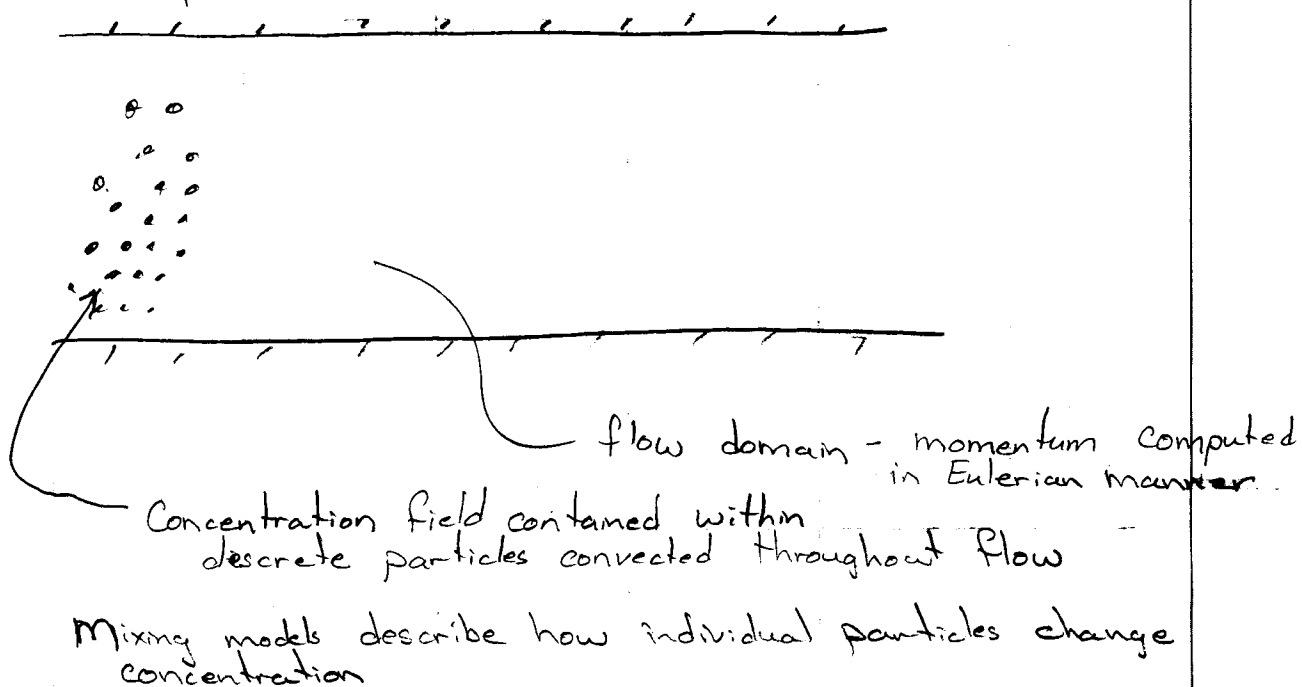 flow domain - momentum computed
in Eulerian manner.
Concentration field contained within
discrete particles convected throughout flow
Mixing models describe how individual particles change
concentration